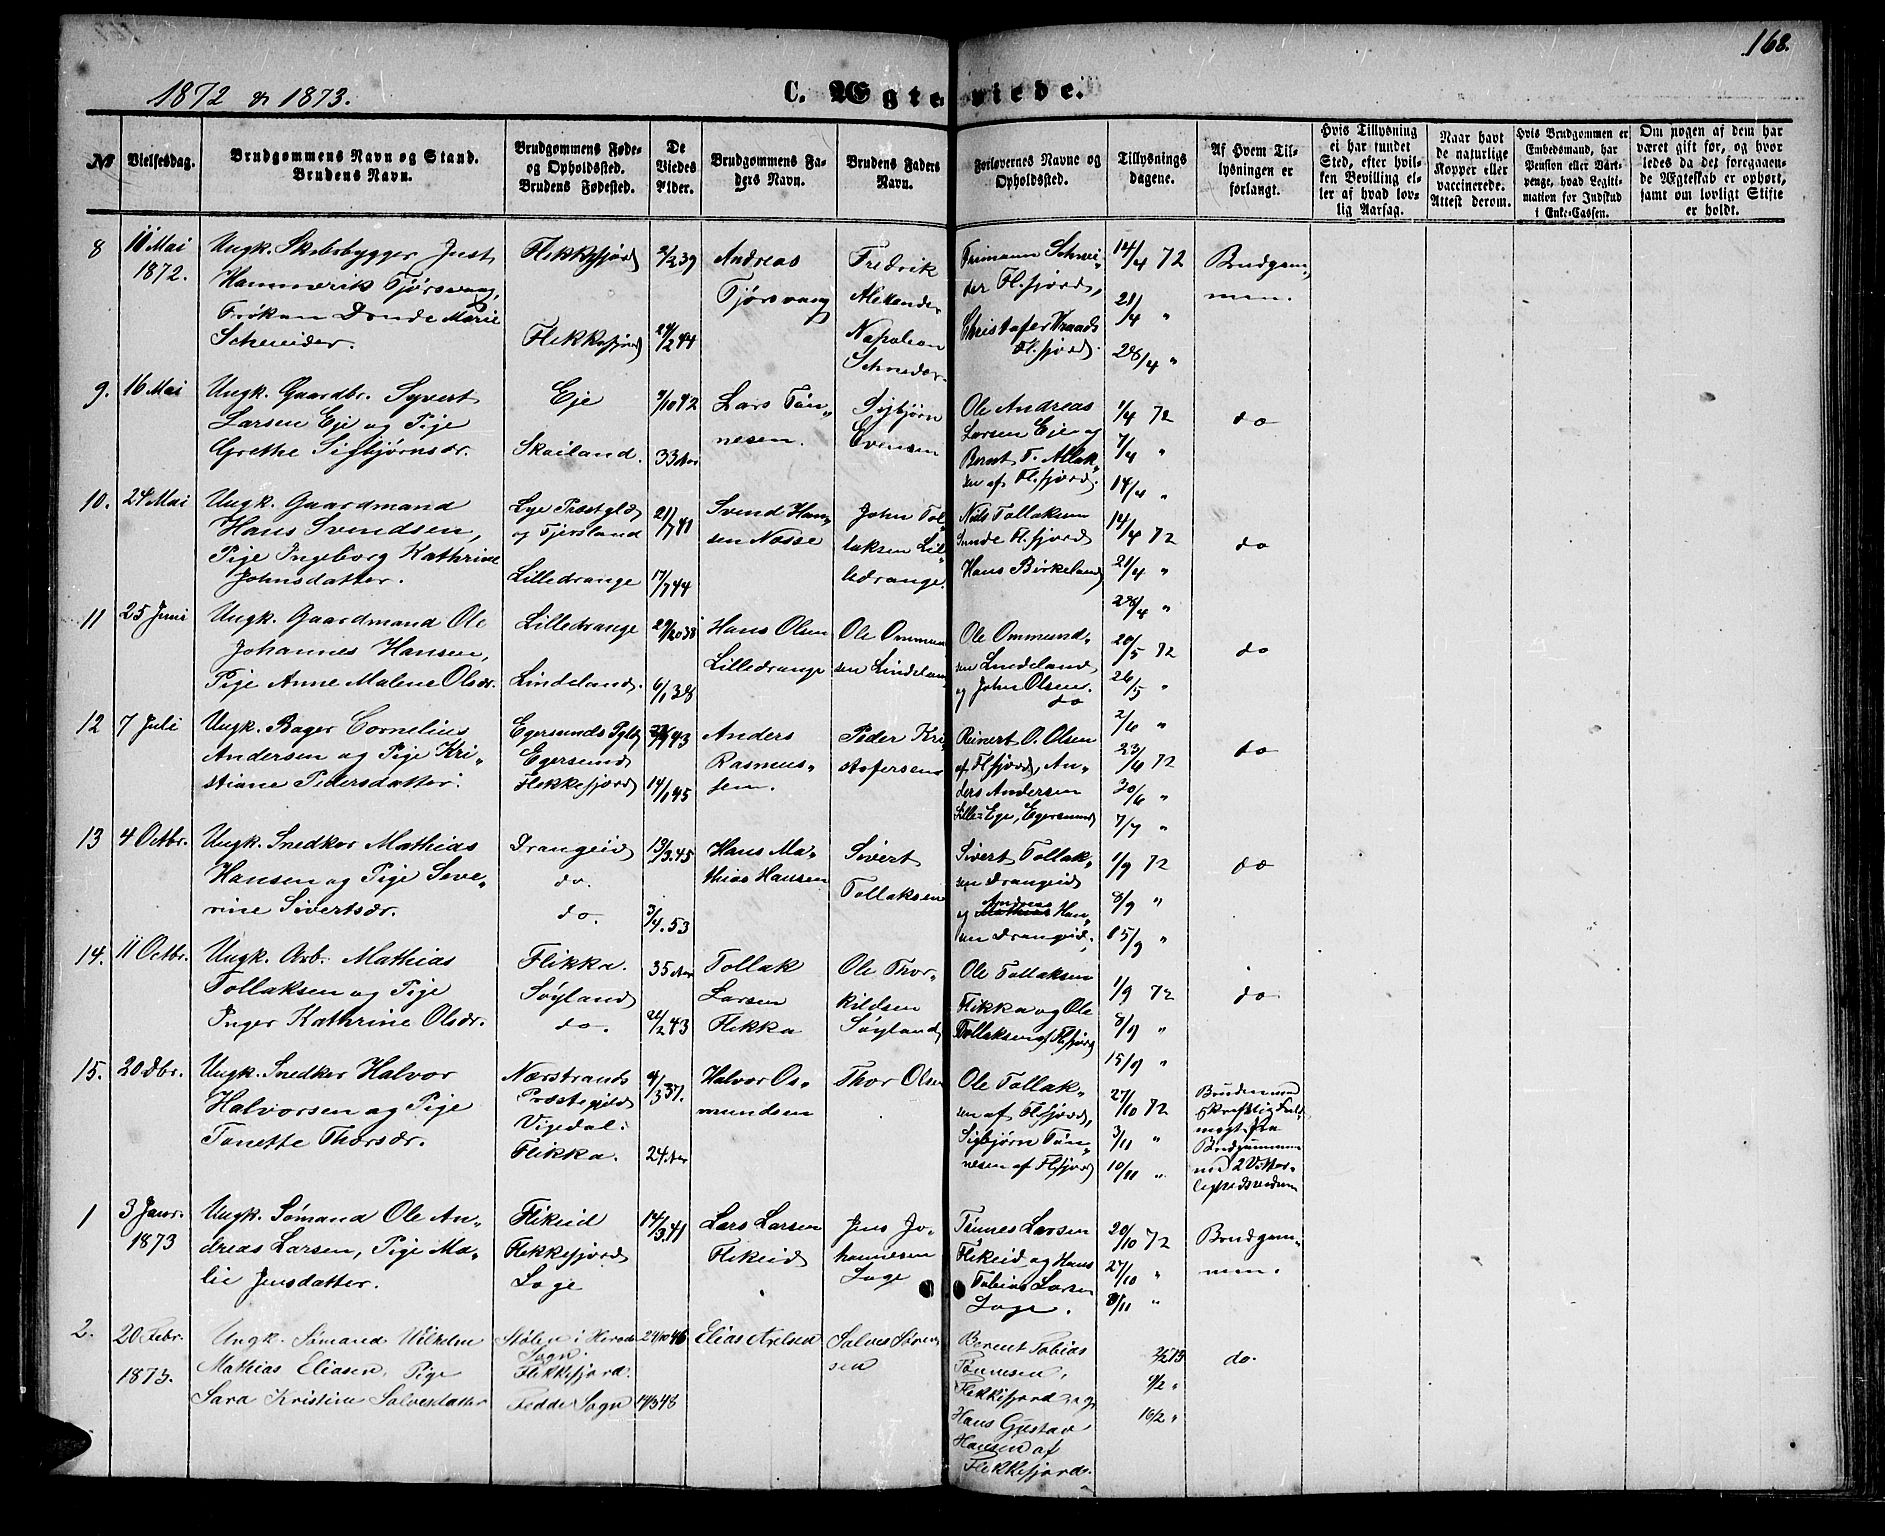 168.
1872 & 1873.
C. Ægteviede.
№
Vielsesdag.
Brudgommens Navn og Stand.
Brudens Navn.
Brudgommens Føde-
og Opholdssted.
Brudens Fødested.
De
Viedes
Alder.
Brudgommens Fa-
ders Navn.
Brudens Faders
Navn.
Forlovernes Navne og
Opholdssted.
Tillysnings
dagene.
Af Hvem Til-
lysningen er
forlangt.
Hvis Tillysning
ei har fundet
Sted, efter hvil-
ken Bevilling el-
ler af hvad lov-
lig Aarsag.
Naar havt
de naturlige
Kopper eller
vaccinerede.
Attest derom.
Hvis Brudgommen er
Embedsmand, har
Pension eller Vart-
penge, hvad Legiti-
mation for Indskud
i Enke-Cassen.
Om nogen af dem har
været gift før, og hvor
ledes da det foregaaen-
de Ægteskab er ophørt,
samt om lovligt Skifte
er holdt.
8
11 Mai
1872.
Ungk. Skibsbygger Just
Hammerik Tjørsvaag,
Frøken Dende Marie
Schneider.
Flekkefjord
Flekkefjord
2/2 39
24/2 44
Andreas
Tjørsvaag
Fredrik
Alexander
Napoleon
Schneder
Schnei-
der Fl.fjord,
Christofer
Fl.fjord.
14/4 72
21/4 "
28/4 "
Brudgom-
men.
9.
16 Mai
Ungk. Gaardbr. Syvert
Larsen Eje og Pige
Grethe Sigbjørnsdr.
Eje
Skailand.
9/10 42
33 Aar
Lars Tøn-
nesen.
Sigbjørn
Evensen
Ole Andreas
Larsen Eje og
Bernt T. Allak-
sen af Fl.fjord.
1/4 72
7/4 "
14/4 "
do
10.
24 Mai
Ungk. Gaardmand
Hans Svendsen,
Pige Ingeborg Kathrine
Johnsdatter.
Lye Præstgld
og Tjørsland
Lilledrange
21/7 41
17/7 44
Svend Han-
sen Nosse
John Tol-
laksen Lil-
ledrange.
Nils Tollaksen
Sunde Fl.fjord
Hans Birkeland
14/4 72
21/4 "
28/4 "
do
11
25 Juni
Ungk. Gaardmand Ole
Johannes Hansen,
Pige Anne Malene Olsdr.
Lilledrange
Lindeland.
29/10 38
6/1 38
Hans Olsen
Lilledrange
Ole Ommun
sen Lindeland
Ole Ommund-
sen Lindeland
og John Olsen.
do
20/5 72
26/5 "
2/6 "
do
12
7 Juli
Ungk. Bager Cornelius
Andersen og Pige Kri-
stiane Pedersdatter.
Egersunds Pgld
Egersund
Flekkefjord
43
14/1 45
Anders
Rasmus-
sen.
Peder Kri
stofersen
Reinert O. Olsen
af Fl.fjord, An-
ders Andersen
Lille-Eje, Egersund
23/6 72
30/6 "
7/7 "
do
13
4 Octbr.
Ungk. Snedker Mathias
Hansen og Pige Seve-
rine Sivertsdr.
Drangeid
do.
do.
13/3 45
3/4 53
Hans Ma-
thias Hansen
Sivert
Tollaksen
Sivert Tollak-
sen Drangeid
og Andreas Han-
sen Drangeid.
1/9 72
8/9 "
15/9 "
do
14.
11 Octbr.
Ungk. Arb. Mathias
Tollaksen og Pige
Inger Kathrine Olsdr.
Flikka.
Søyland
do.
35 Aar
43
Tollak
Larsen
Flikka
Ole Thor-
kildsen
Søyland
Ole Tollaksen
Flikka og Ole
Tollaksen af Flfjord
1/9 72
8/9 "
15/9 "
do
15.
20 Dbr.
Ungk. Snedker Halvor
Halvorsen og Pige
Tonette Thorsdr.
Nærstrands
Præstegjeld
Vigedal.
Flikka.
4/3 37.
24 Aar
Halvor Os-
mundsen
Thor Olsen
Ole Tollak-
sen af Fl.fjord,
Sigbjørn Tøn-
nesen af Flfjord
27/10 72
3/11 "
10/11 "
Bruden med
skriftlig Fuld
magt fra
Brudgommen
med 2 Vitter-
1
3 Janr.
1873
Ungk. Sømand Ole An-
dreas Larsen, Pige Ma-
lie Jensdatter.
Flikeid
Flekkefjord
Loge
14/3 41
Lars Larsen
Flikeid
Jens Jo-
hannesen
Loge
Tønnes Larsen
Flikeid og Hans
Tobias Larsen
Loge.
20/10 72
27/10 "
3/11 "
Brudgom-
men.
2.
20 Febr.
1873.
Ungk. Sømand Wilhelm
Mathias Eliasen, Pige
Sara Kristine Salvesdatter
Stølen i Herads
Sogn
Flekkefjord.
Fedde Sogn
24/10 46
14/3 48
Elias Axelsen
Salves Søren
sen
Berent Tobias
Tønnesen,
Flekkefjord og
Hans Gustav
Hansen af
Flekkefjord.
2/2 73
9/2 "
16/2 "
do.